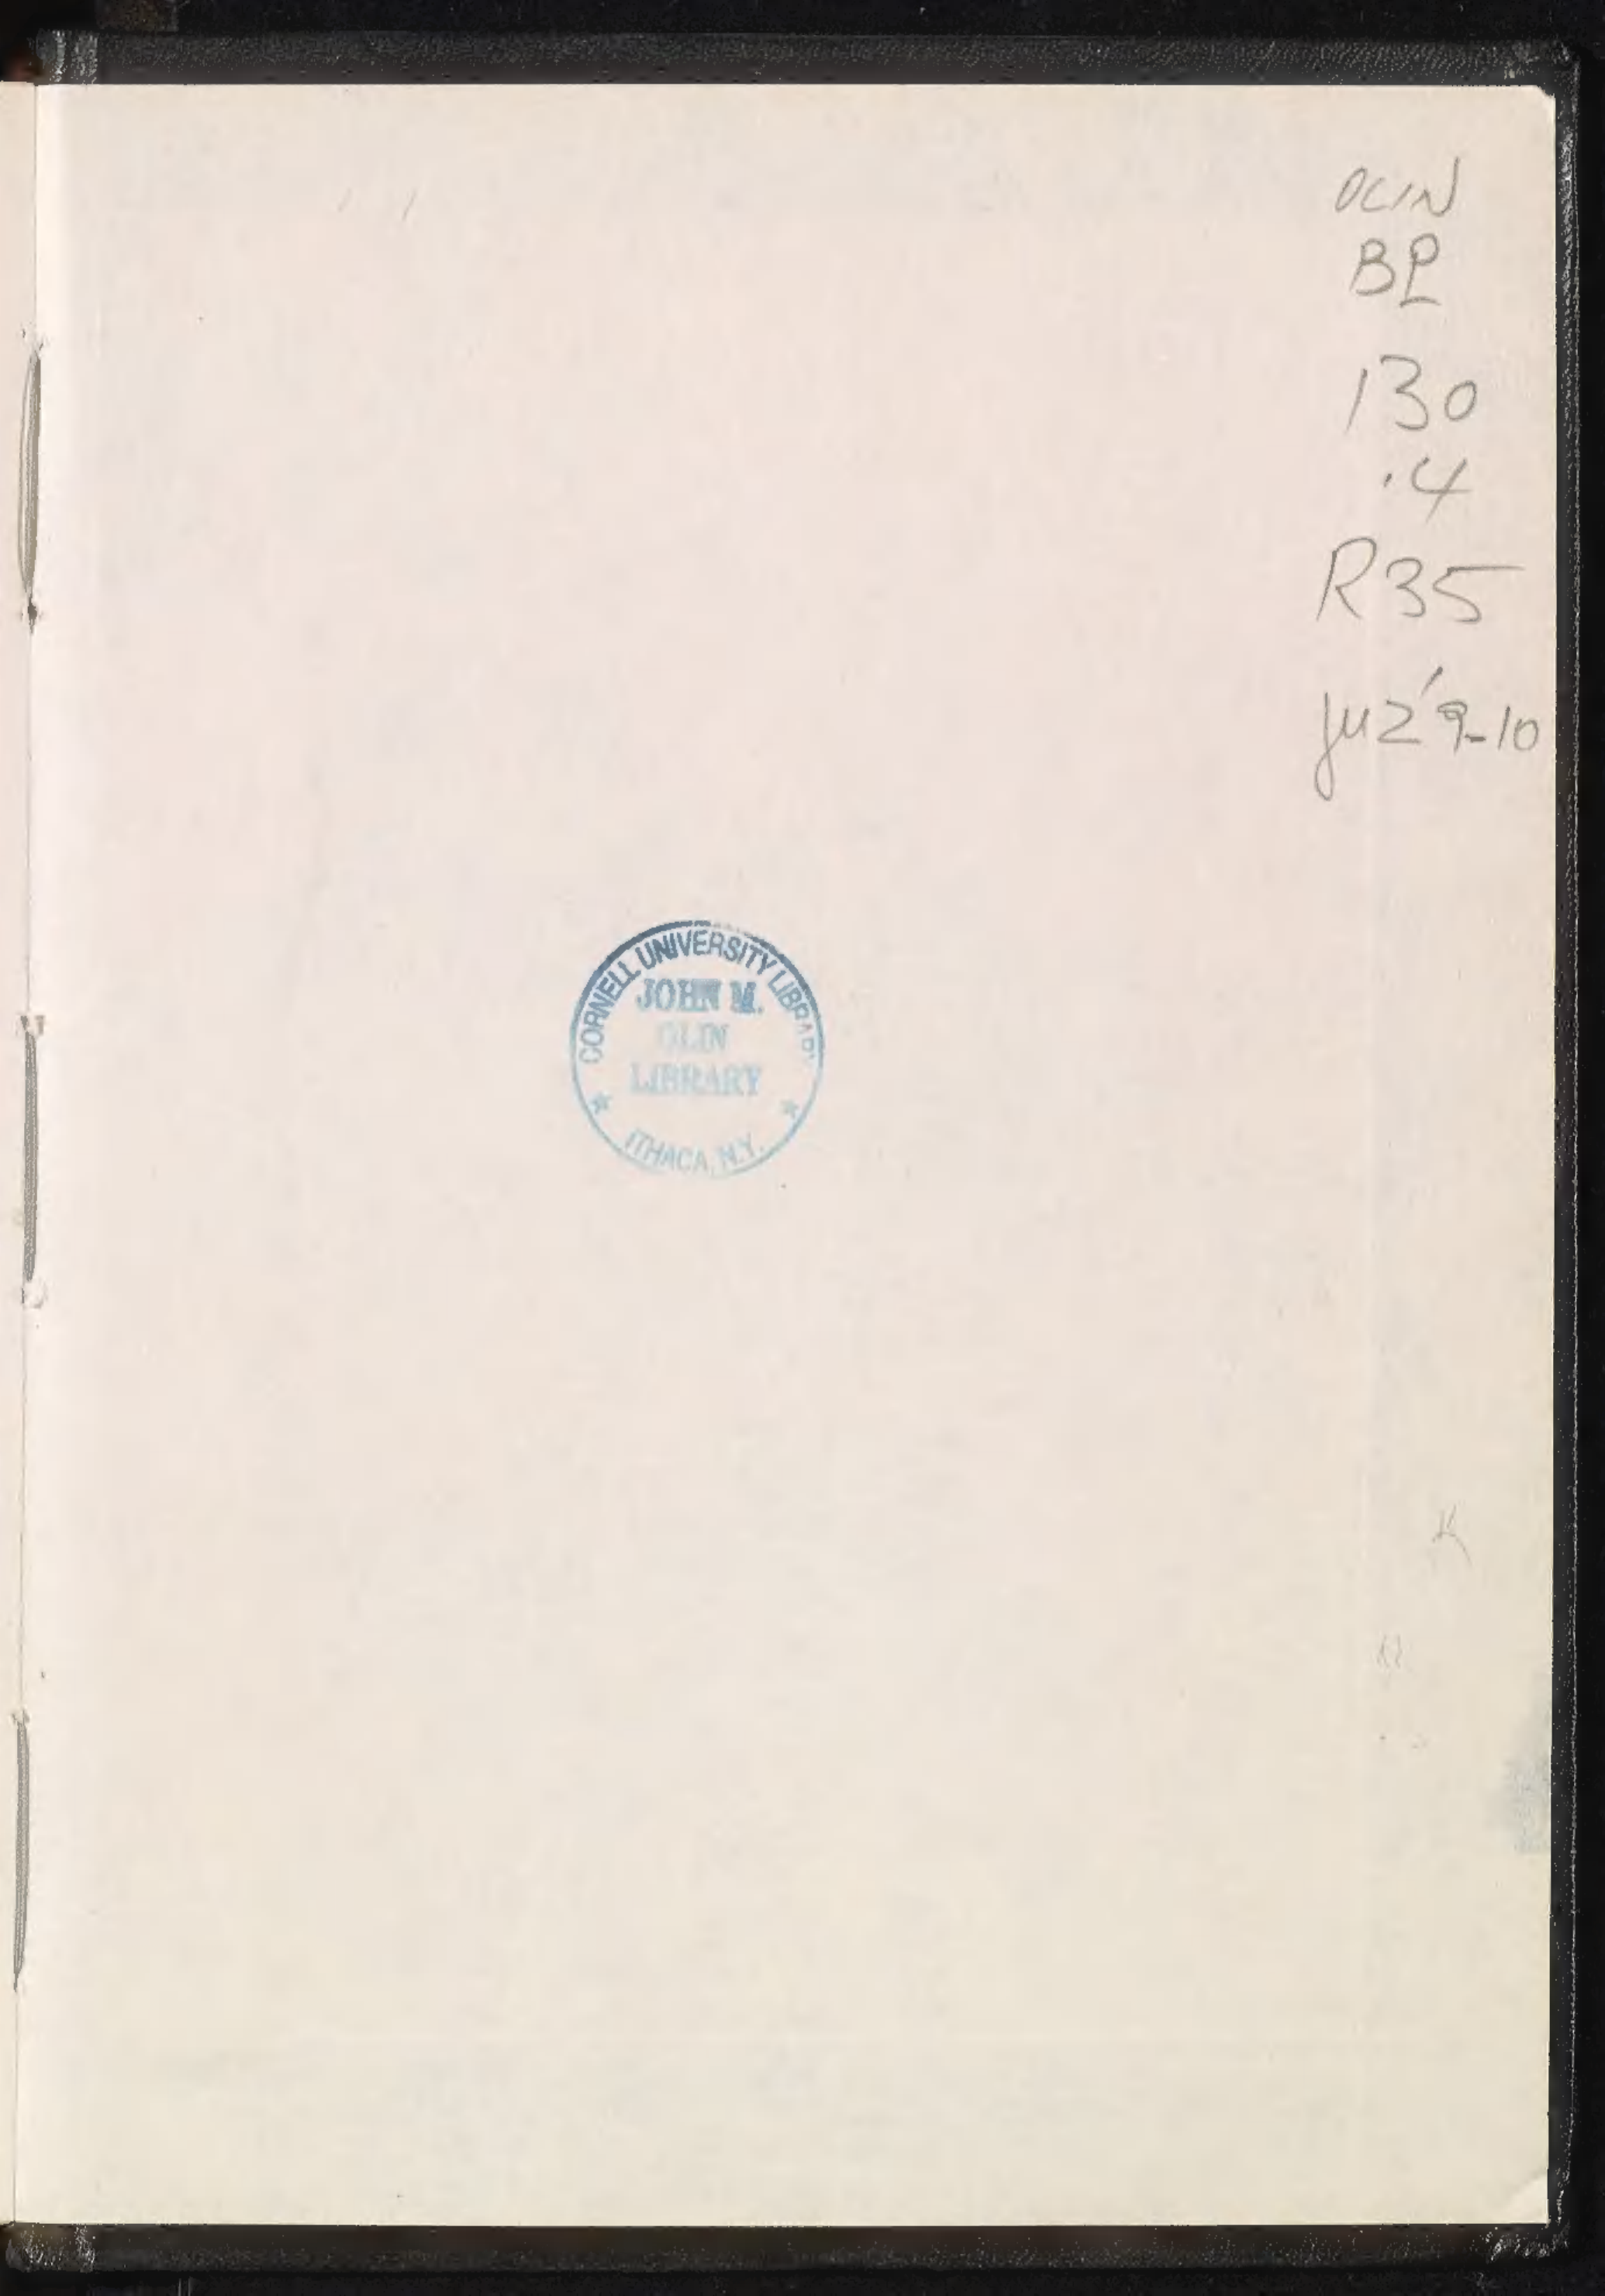 OLIN
BP
130
.4
R35
juz'9-10
CORNELL UNIVERSITY LIBRARY
JOHN M.
OLIN
LIBRARY
ITHACA, N.Y.